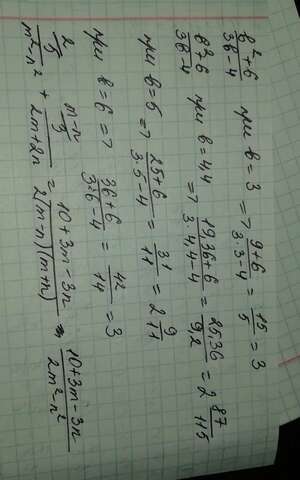 в²+6/3в-4 при в=3 => 9+6/3·3-4 = 15/5 = 3
в²+6/3в-4 при в=4,4 => 19,36+6/3·4,4-4 = 25,36/9,2 = 2 87/115
при в=5 => 25+6/3·5-4 = 31/11 = 2 9/11
при в=6 => 36+6/3·6-4 = 42/14 = 3
2/5/m²-n² + m-n/3/2m+2n = 10+3m-3n/2(m-n)(m+n) = 10+3m-3n/2m²-n²